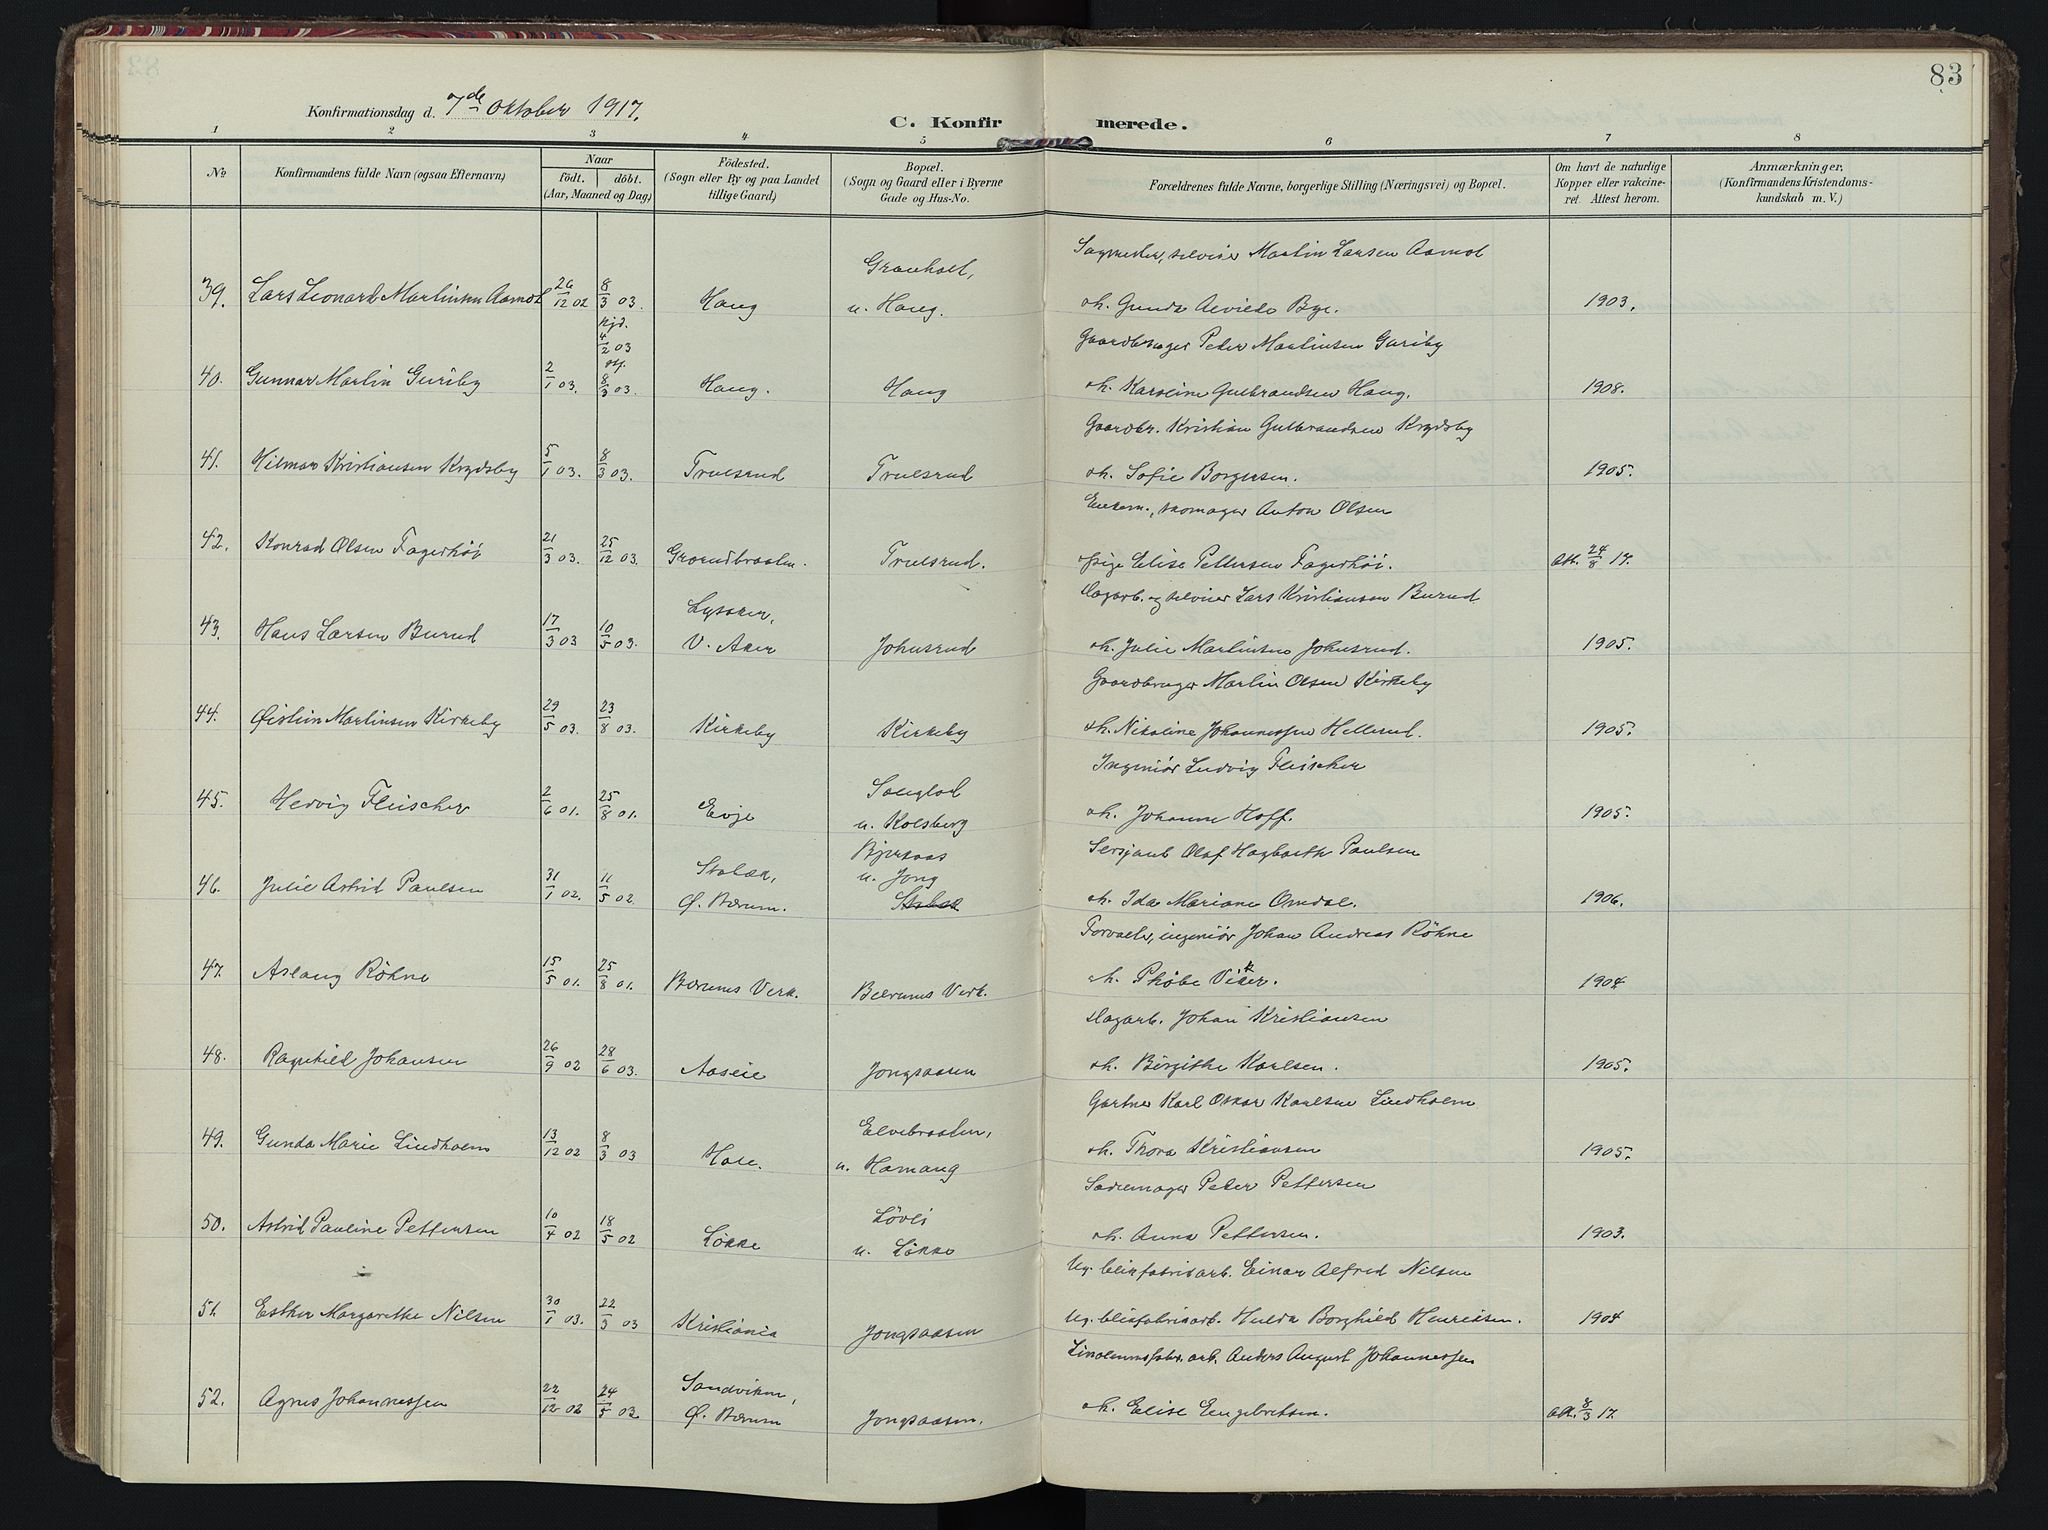 83
Konfirmationsdag d. 7de Oktober 1917.
C. Konfirmerede.
1 2 3 4 5 6 7 8
No. Konfirmandens fulde Navn (ogsaa Efternavn) Naar födt. döbt. (Aar, Maaned og Dag) Födested. (Sogn eller By og paa Landet tillige Gaard) Bopæl. (Sogn og Gaard eller i Byerne Gade og Hus-No. Forældrenes fulde Navne, borgerlige Stilling (Næringsvei) og Bopæl. Om havt de naturlige Kopper eller vakcineret. Attest herom. Anmærkninger, (Konfirmandens Kristendomskundskab m. V.)
Granholt, Martin Larsen Aamot
39. Lars Leonard Martinsen Aamot 26/12 02 8/3 03. Haug u. Haug. oh. Gunda Bye. 1903.
hjd. 4/2 03 Gaardbruger Peter Martinsen Guriby
40. Gunnar Martin Guriby 2/1 03. 8/3 03. Haug. Haug oh. Karoline Gulbrandsen Haug. 1908.
Gaardbr. Kristian Gulbrandsen Krydsby
41. Hilmar Kristiansen Krydsby 5/1 03. 8/3 03. Trulsrud Trulsrud oh. Sofie Borgersen. 1905.
Enkem., skomager Anton Olsen
42. Konrad Olsen Fagerhöi 21/3 03. 25/12 03. Trulsrud. pige Elise Pettersen Fagerhöi. Att. 24/8 17.
Lysaker, Dagarb. og selvier Lars Kristiansen Burud
43. Hans Larsen Burud 17/3 03 10/5 03. V. Aker Johnsrud oh. Julie Martinsen Johnsrud. 1905.
Gaardbruger Martin Olsen Kirkeby
44. Øistein Martinsen Kirkeby 29/5 03. 23/8 03. Kirkeby Kirkeby oh. Nikoline Johannessen Hellerud. 1905.
Ingeniör Ludvig Fleischer
45. Hervig Fleischer 2/6 01. 25/8 01. Evje u. Kolsberg oh. Johanne Hoff. 1905.
Stabæk, Bjerkaas u. Jong Sersjant Olaf Hagbarth Paulsen
46. Julie Astrid Paulsen 31/1 02. 11/5 02. Ø. Bærum. Stabæk oh. Ida Mariane Omdal. 1906.
Forvalter, ingeniör Johan Andreas Röhne
47. Aslaug Röhne 15/5 01. 25/8 01. Bærums Verk. Bærums Verk. oh. Phöbe Viker. 1904
Dagarb. Johan Kristiansen
48. Ragnhild Johansen 26/9 02 28/6 03. Aaseie Jongsaasen oh. Birgithe Karlsen. 1905.
Elvebraaten, Gartner Karl Oskar Karlsen Lindholm
49. Gunda Marie Lindholm 13/12 02 8/3 03 Hale. u. Hamang oh. Thora Kristiansen 1905.
Lövli Sadelmager Peder Pettersen
50. Astrid Pauline Pettersen 10/4 02 18/5 02 Løkke u. Løkke oh. Anna Pettersen. 1903.
Ug. blikfabrikarb. Einar Alfred Nilsen
51. Esther Margarethe Nilsen 30/1 03. 22/3 03 Kristiania Jongsaasen Ug. blikfabrikarb. Hulda Borghild Henriksen. 1904
Sandviken, Linoleumsfabr. arb. Anders August Johannessen
52. Agnes Johannessen 22/12 02 24/5 03 Ø. Bærum Jongsaasen. oh. Elise Engebretsen. Att. 8/3 17.